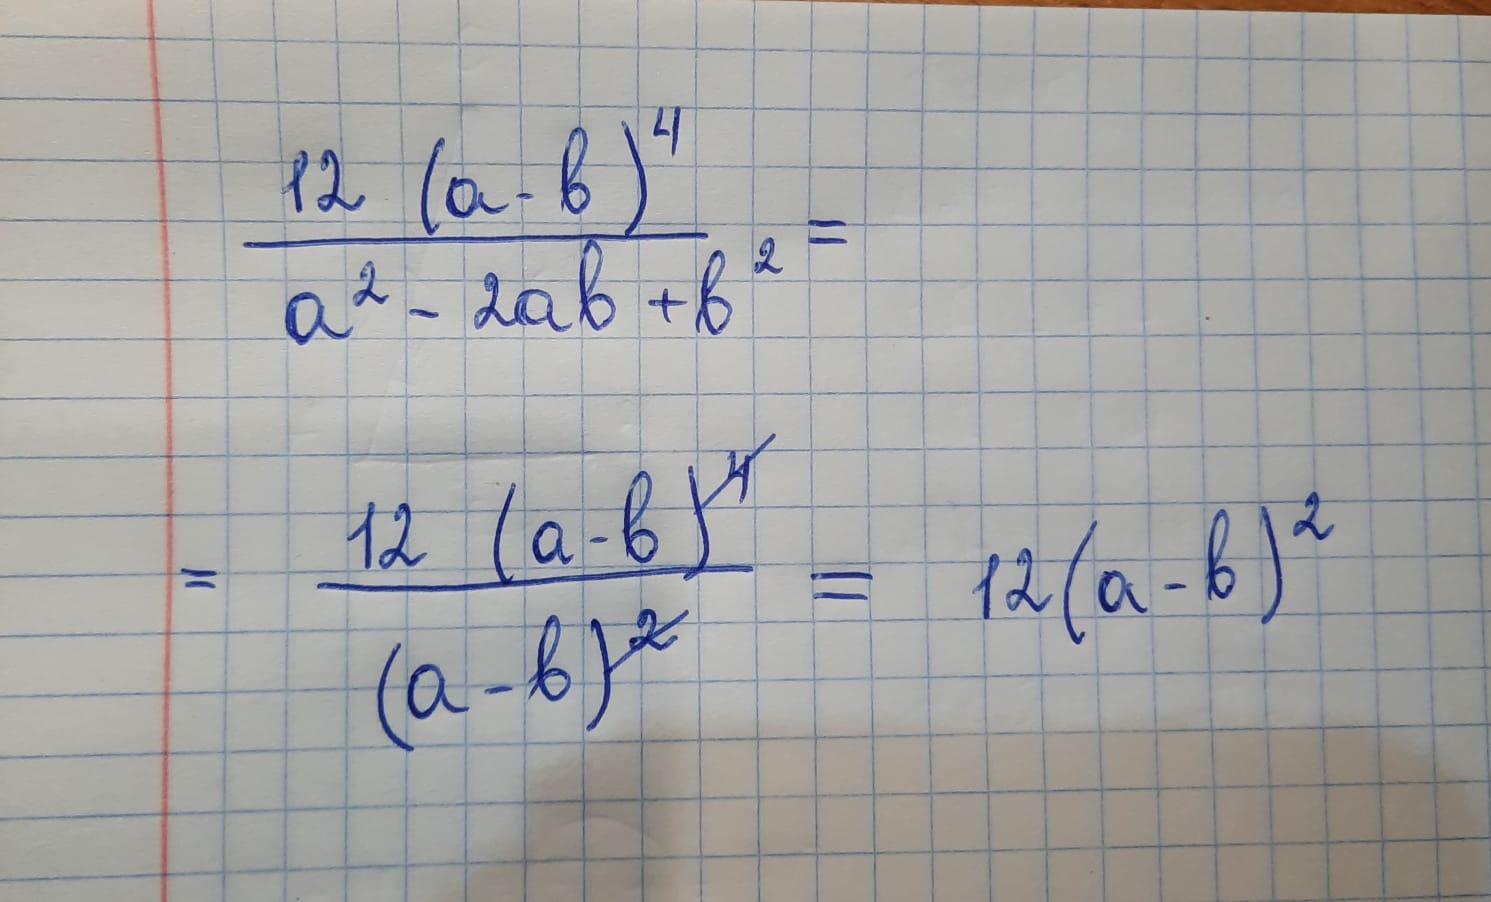 12 (a-b)⁴
a² - 2ab + b² =
= 12 (a-b)⁴ = 12(a-b)²
(a-b)²